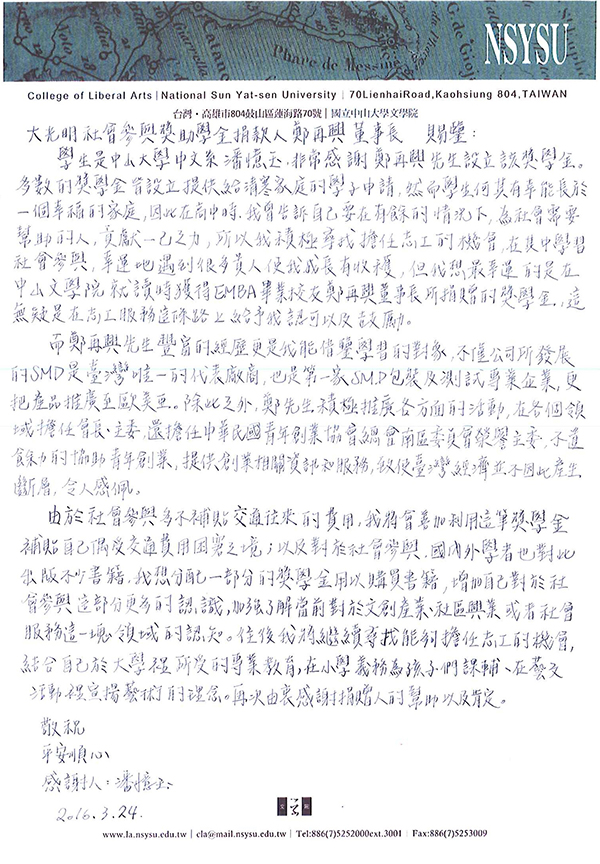 NSYSU
College of Liberal Arts | National Sun Yat-sen University | 70LienhaiRoad,Kaohsiung 804,TAIWAN
台灣・高雄市804鼓山區蓮海路70號 | 國立中山大學文學院
大光明社會參與獎助學金捐款人鄭再興董事長 賜鑒：
學生是中山大學中文系潘憶玉，非常感謝鄭再興先生設立該獎學金。
多數的獎學金皆設立提供給清寒家庭的學子申請，然而學生何其有幸能長於
一個幸福的家庭，因此在高中時，我曾告訴自己要在有餘的情況下，為社會需要
幫助的人，貢獻一己之力，所以我積極尋找擔任志工的機會，在其中學習
社會參與，幸運地遇到很多貴人使我成長有收穫，但我想最幸運的是在
中山文學院就讀時獲得EMBA畢業校友鄭再興董事長所捐贈的獎學金，這
無疑是在志工服務這條路上給予我認可以及鼓勵。
而鄭再興先生豐富的經歷更是我能借鑒學習的對象，不僅公司所發展
的SMD是臺灣唯一的代表廠商，也是第一家SMD包裝及測試專業企業，更
把產品推廣至歐美亞。除此之外，鄭先生積極推廣各方面的活動，在各個領
域擔任會長、主委，還擔任中華民國青年創業協會總會南區委員會榮譽主委，不遺
餘力的協助青年創業，提供創業相關資訊和服務，致使臺灣經濟並不因此產生
斷層，令人感佩。
由於社會參與多不補貼交通往來的費用，我將會善加利用這筆獎學金
補貼自己偶受交通費用困窘之境；以及對於社會參與，國內外學者也對此
出版不少書籍，我想分配一部分的獎學金用以購買書籍，增加自己對於社
會參與這部分更多的認識，加強了解當前對於文創產業、社區興業或者社會
服務這一塊領域的認知。往後我將繼續尋找能夠擔任志工的機會，
結合自己於大學裡所受的專業教育，在小學義務為孩子們課輔、在藝文
活動裡宣揚藝術的理念。再次由衷感謝捐贈人的幫助以及肯定。
敬祝
平安順心
感謝人：潘憶玉
2016.3.24.
www.la.nsysu.edu.tw | cla@mail.nsysu.edu.tw | Tel:886(7)5252000ext.3001 | Fax:886(7)5253009